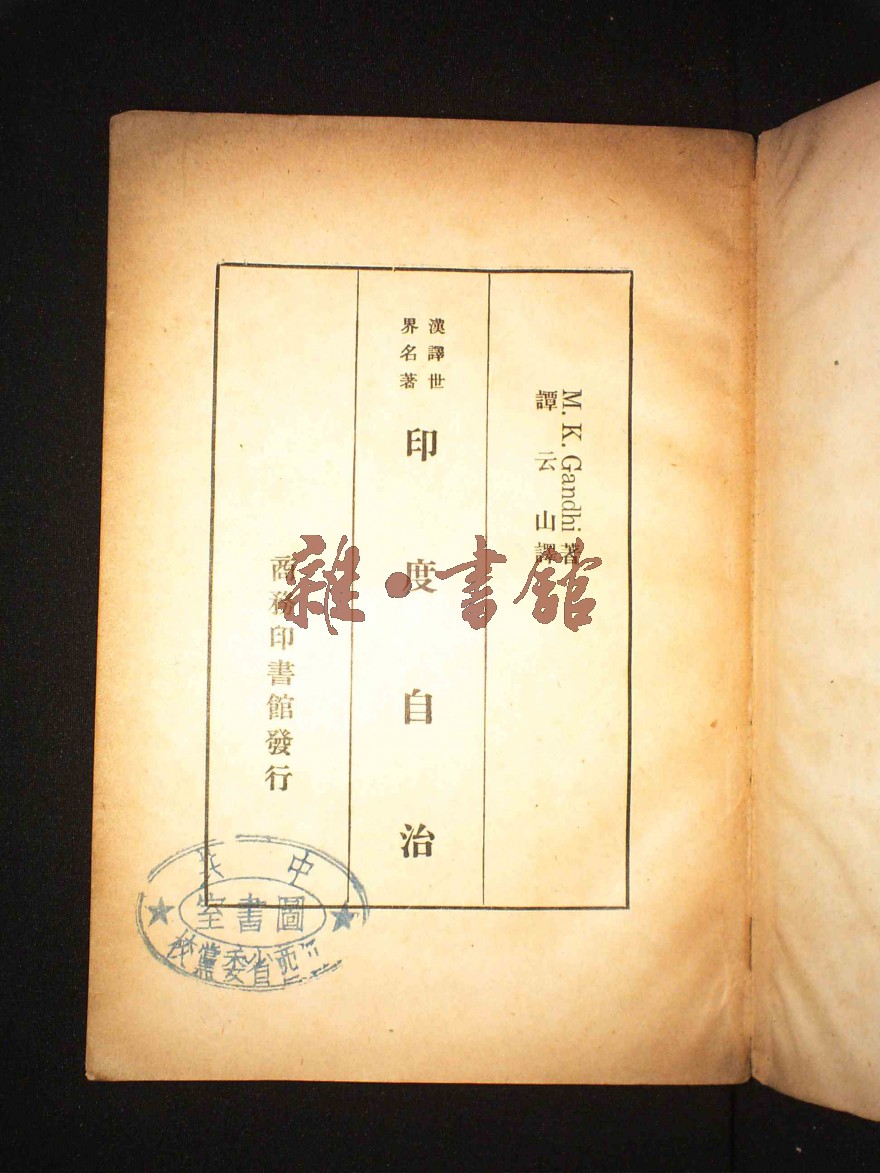 M. K. Gandhi 著
譚云山譯
漢譯世
界名著
印度自治
商務印書館發行
雜·書館
中共
圖書室
西省委黨校